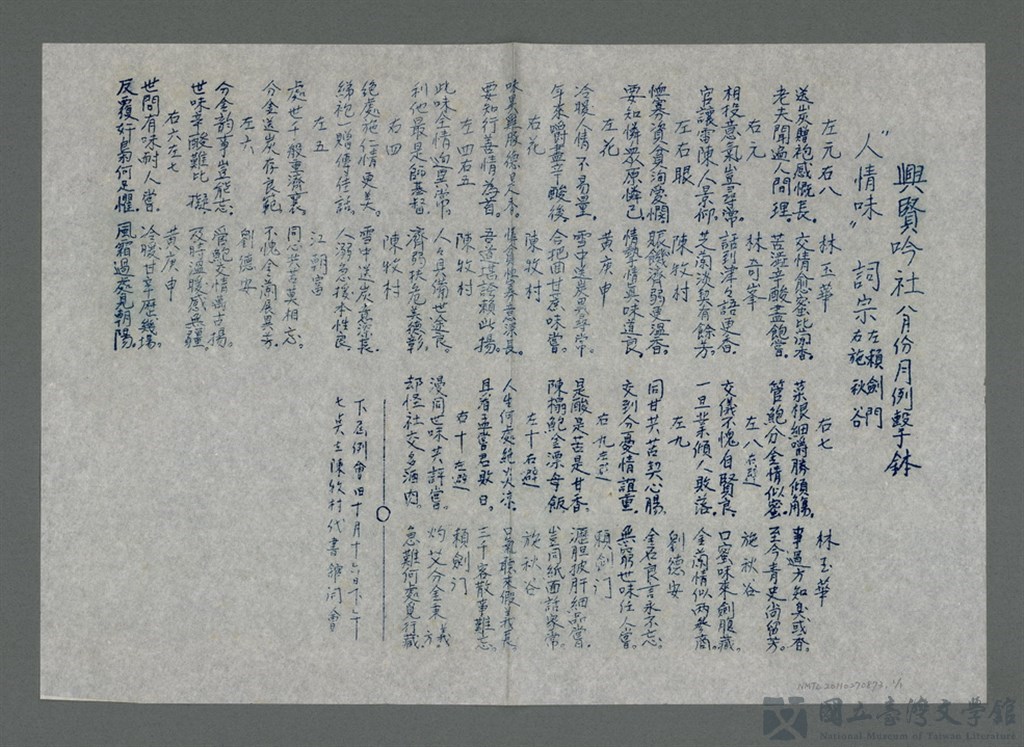 興賢吟社八月份月例擊鉢
"人情味" 詞宗 左賴劍門 右施秋谷
左元右八 林玉華
送炭贈袍感慨長。交情愈密比蘭香。
老夫閱過人間理。苦澁辛酸盡飽嘗。
右元 林寄峯
相投意氣豈尋常。話到津々語更香。
官讓雷陳人景仰。芝蘭淡契有餘芳。
左右眼 陳牧村
恤寡濟貧洵愛憫。賑饑濟弱更溫香。
要知憐眾原憐己。情摯情真味道良。
左花 黃庚申
冷暖人情不易量。雪中送炭異尋常。
年來嚼盡辛酸後。合把回甘惹味嘗。
右花 陳牧村
要知行善情為首。吾道堪誇賴此揚。
左四右五 陳牧村
此味含情迥異常。人々具備世途良。
利他最是師基督。濟弱扶危美德彰。
右四 陳牧村
絕處施仁情更美。雪中送炭意深長。
綈袍一贈傳佳話。人溺急援本性良。
左五 江朝富
處世千般重濟襄。同心共苦莫相忘。
分金送炭存良範。不愧金蘭展異芳。
左六 劉德安
分金韵事豈能忘。管鮑交情萬古揚。
世味辛酸難比擬。及時溫暖感無疆。
右六左七 黃庚申
世間有味耐人嘗。冷暖甘辛歷幾場。
反覆奸梟何足懼。風霜過處見朝陽。
右七 林玉華
菜根細嚼勝傾觴。事過方知臭或香。
管鮑分金情似蜜。至今青史尚留芳。
左八右避 施秋谷
交儀不愧自賢良。口蜜味來劍腹藏。
一旦業傾人敗落。金蘭情似兩參商。
左九 劉德安
同甘共苦契心腸。金石良言永不忘。
交到分憂情誼重。無窮世味任人嘗。
右九左避 賴劍门
是酸是苦是甘香。瀝胆披肝細品嘗。
陳榻鮑金漂母飯。豈同紙面話家常。
左十右避 施秋谷
人生何處絕炎涼。口蜜聽來假義長。
且看孟嘗君敗日。三千客散事難忘。
右十左避 賴劍门
漫同世味共評嘗。灼艾分金秉義方。
却怪社交多酒肉。急難何處覓行藏。
下届例會旧十月十六日下午
七点在陳牧村代書館開會
NMTL20110270873 1/1
國立臺灣文學館
National Museum of Taiwan Literature